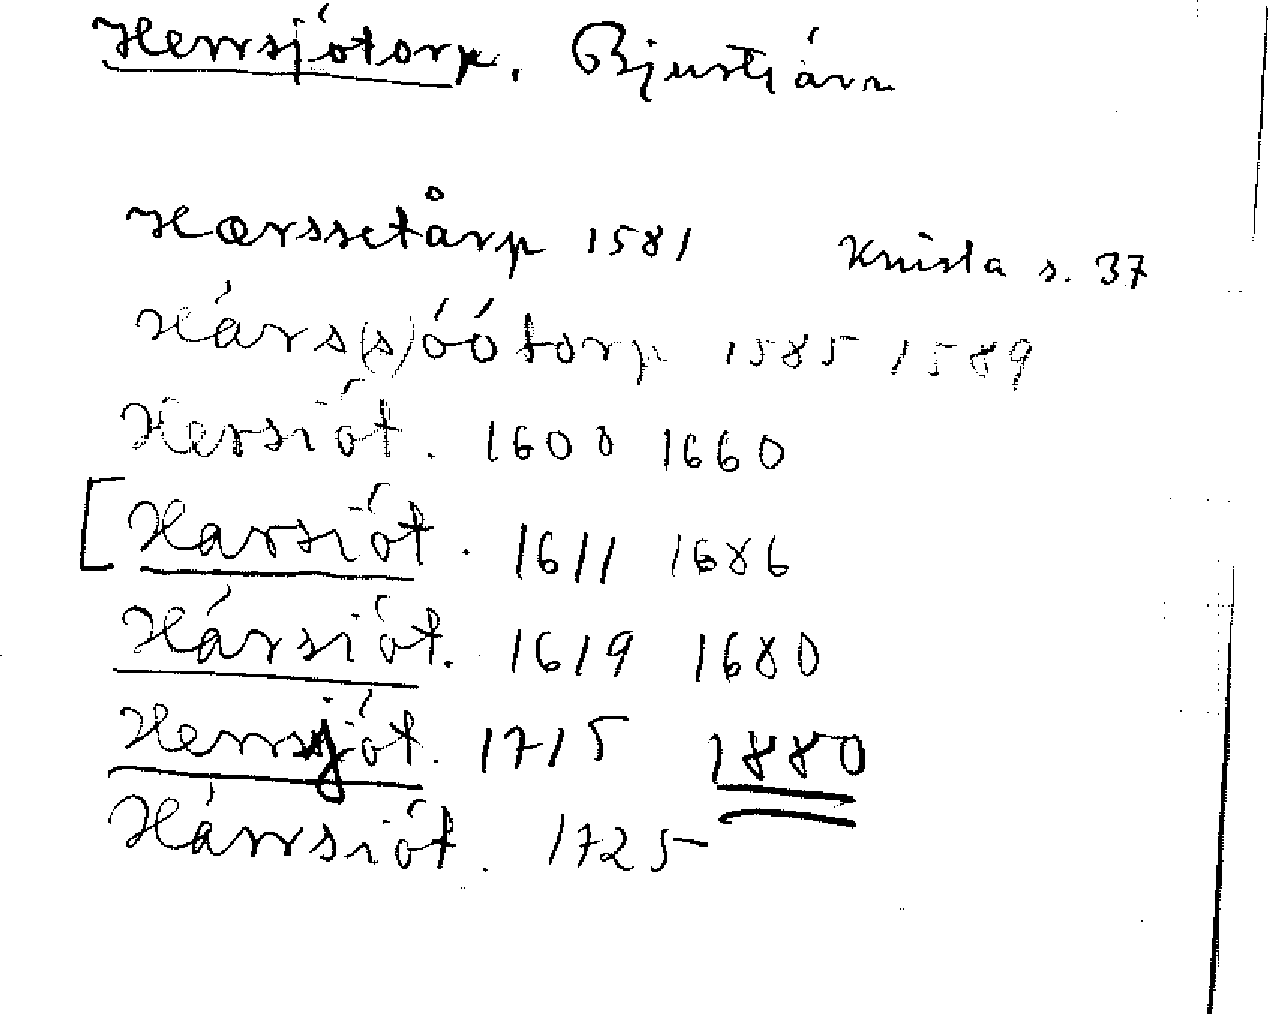 Herrsjötorp. Bjurtjärn
Hærssetårp 1581 Knista s. 37
Härs(s)öötorp 1585 1589
Hersiöt. 1600 1660
[Harsiöt. 1611 1686
Härsiöt. 1619 1680
Herrsjöt. 1715 1880
Härrsiöt. 1725